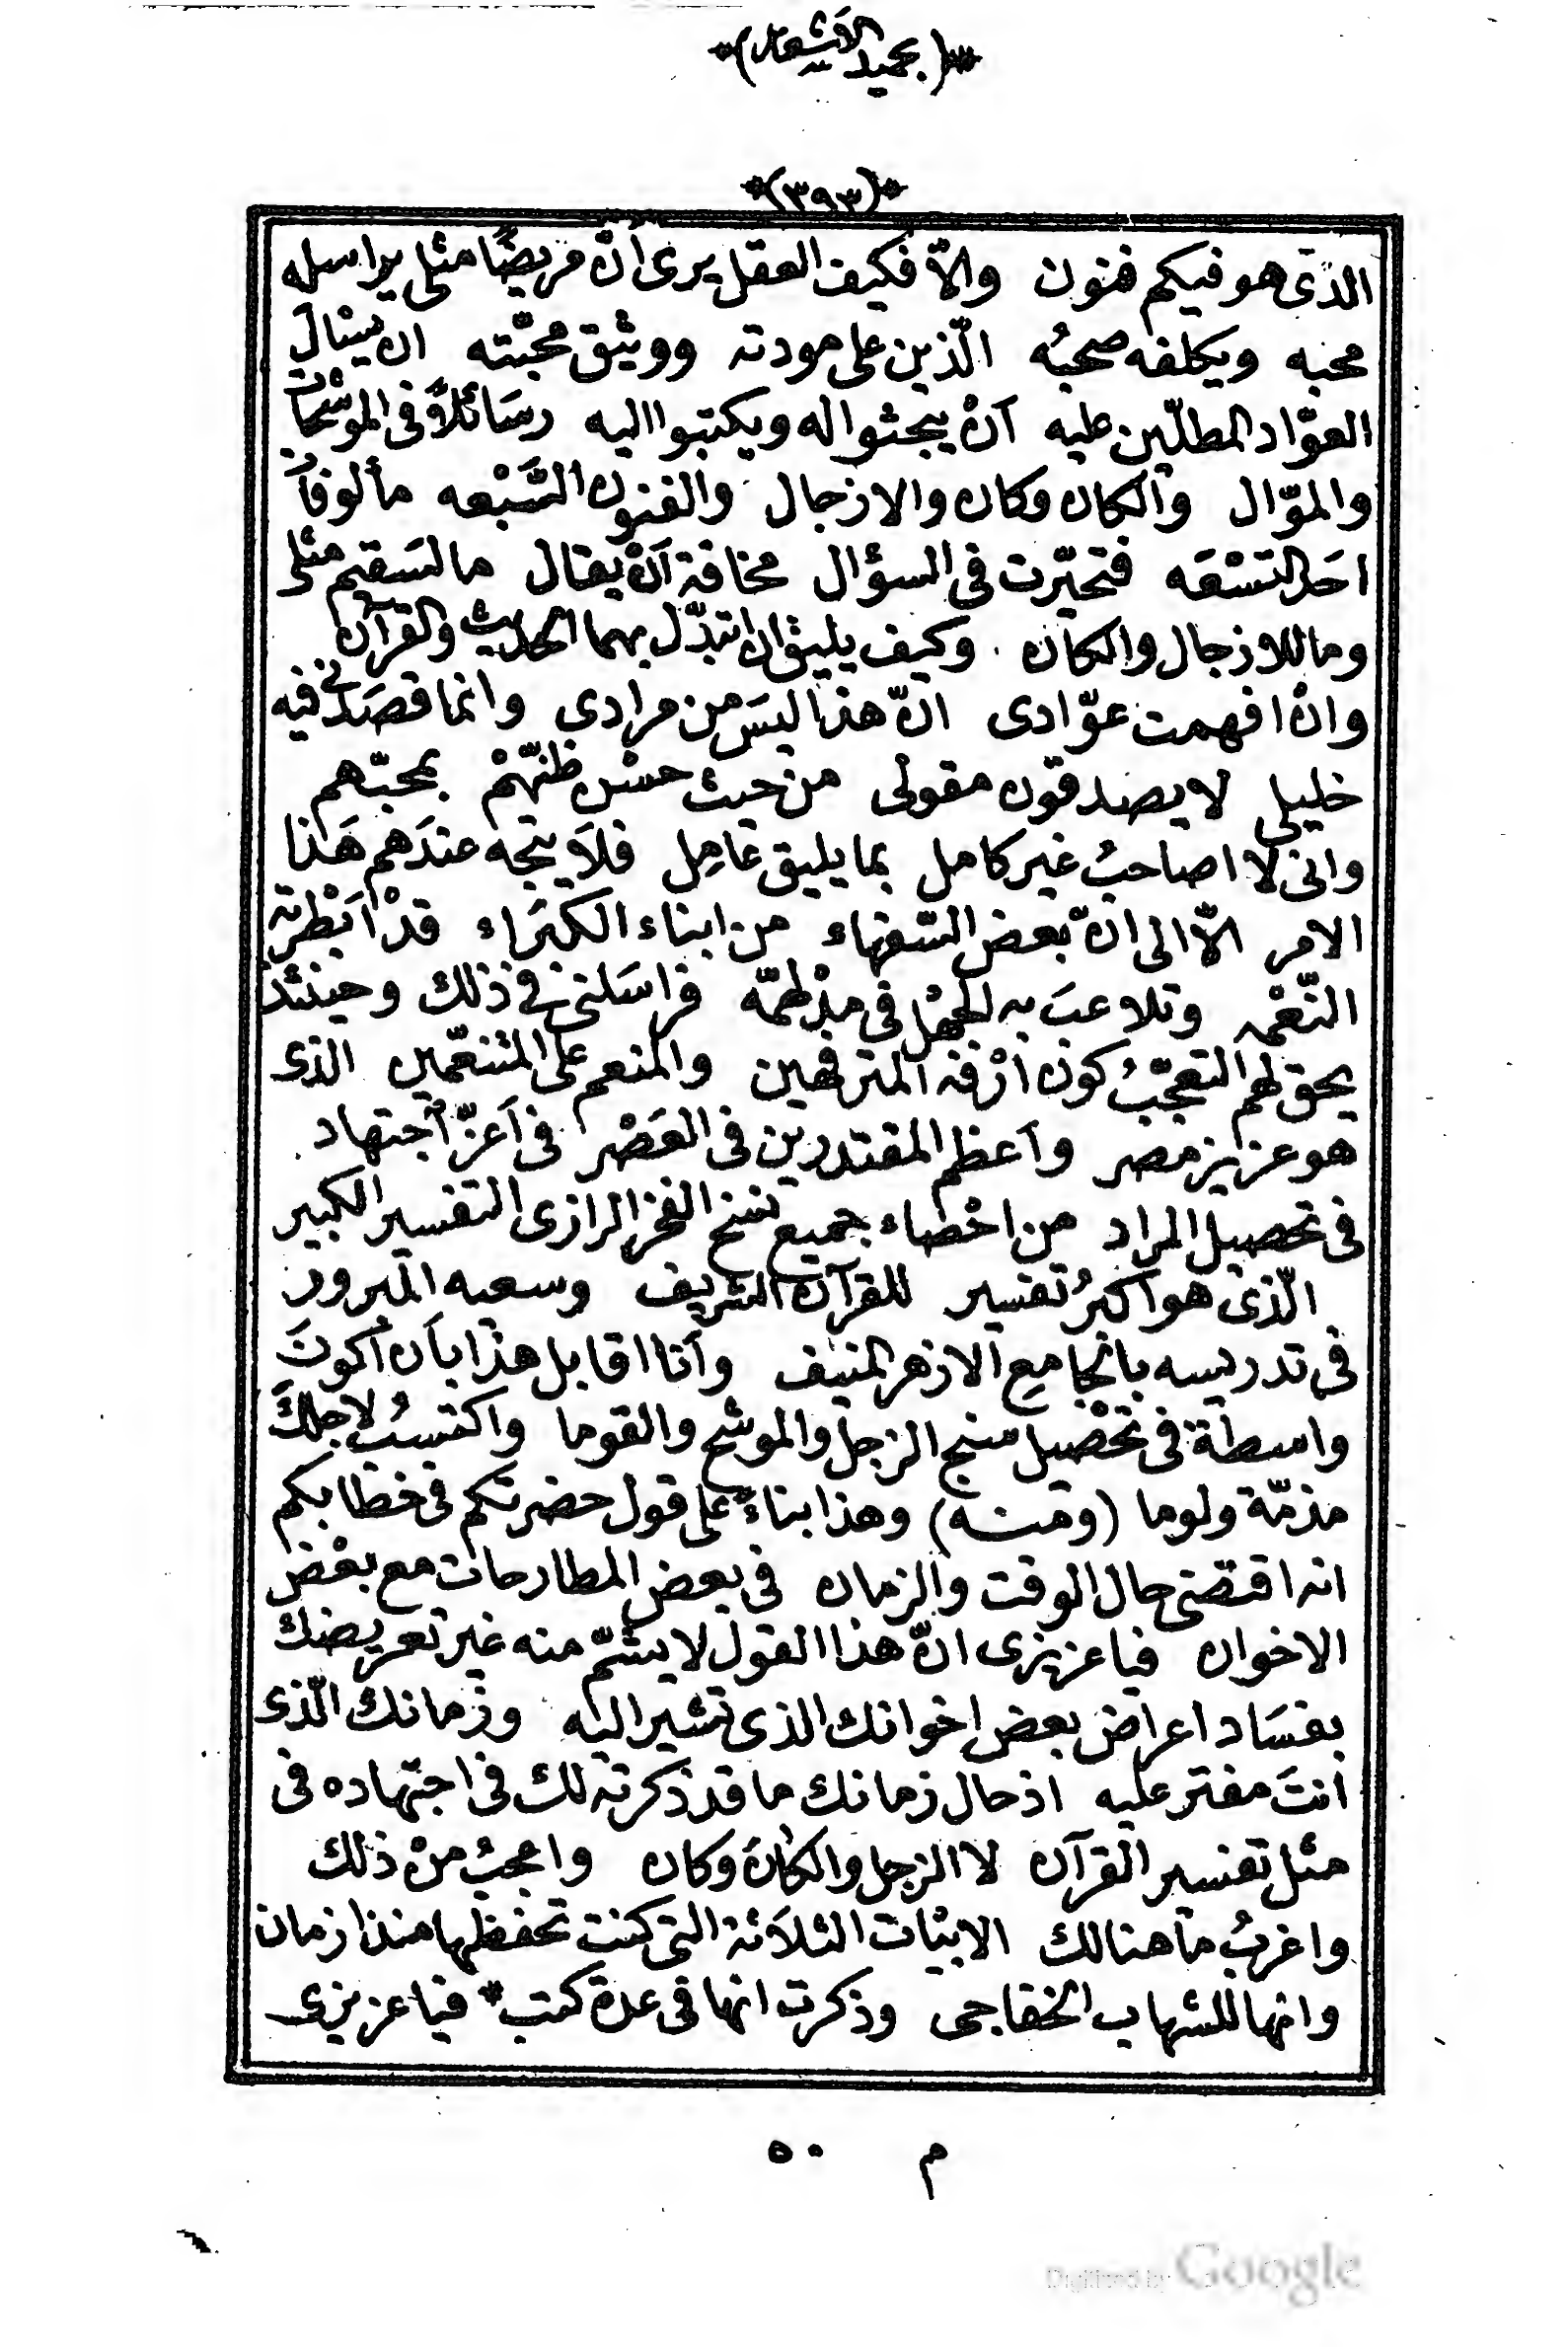 *(بحميد الأشعار)*
*(٣٩٣)*
الذى هو فيكم فنون والّا فكيف العقل يرى أنْ مريضًا مثلى يراسله
محبه ويكلفه صحبُه الّذين على مودته ووثيق محبّته ان يسْأل
العوّاد المطلّين عليه أنْ يبحثوا له ويكتبوا اليه رسَائلاً فى الموشّحات
والموّال والكان وكان والازجال والفنون السَّبْعه مألوفاً
احَد التسْعَه فتحيّرت فى السؤال مخافة أنْ يقال ما لسَقيم مثلى
وما للازجال والكان وكيف يليق ان اتبدّل بهما الحديث والقرآن
وانْ افهمت عوّادى انّ هذا ليسَ من مرادى وانما قصَدنى فيه
خليلى لا يصدقون مقولى من حيث حسْن ظنّهمْ بمحبّهم
وانى لا اصاحبُ غير كامل بما يليق عَامِل فلاَ يتجه عندَهم هَذا
الامر الّا الى انّ بعض السّفهاء من ابناء الكبَراء قدْ أبْطرته
النّعْمه وتلاعبَ به الجهْل فى مدْلهمّه فراسَلنى فى ذلك وحينئذ
يحق لهم التعجّبُ كون ارْفه المترفهين والمنعم على المتنعّمين الذى
هو عزيز مصر وأعظم المقتدرين فى العَصْر فى أعزّ أجتهاد
فى تحصيل المراد من احْصاء جميع نسخ الفخر الرازى التفسير الكبير
الّذى هو اكبرُ تفسير للقرآن الشريف وسعيه المبرور
فى تدريسه بالجامع الازهر المنيف وأنا اقابل هذا بأن أكونَ
واسطة فى تحْصيل سنج الزجل والموشح والقوما واكتسبُ لاجلكَ
مذمّة ولوما (ومنه) وهذا بناءً على قول حضرتكم فى خطابكم
انه اقتضى حال الوقت والزمان فى بعض المطارحات مع بعْض
الاخوان فيا عزيزى انّ هذا القول لا يشمّ منه غير تعريضك
بفسَاد اعراض بعض اخوانك الذى تشير اليه وزمانك الّذى
انتَ مفتر عليه اذ حال زمانك ما قد ذكرته لك فى اجتهاده فى
مثل تفسير القرآن لا الزجل والكانَ وكان واعجبُ منْ ذلك
واغربُ ما هنالك الابْيَات الثلاَثة التى كنت تحفظها منذ ازمان
وانها للشهاب الخفاجى وذكرت انها فى عدة كتب * فيا عزيزى
م ٥٠
Digitized by Google